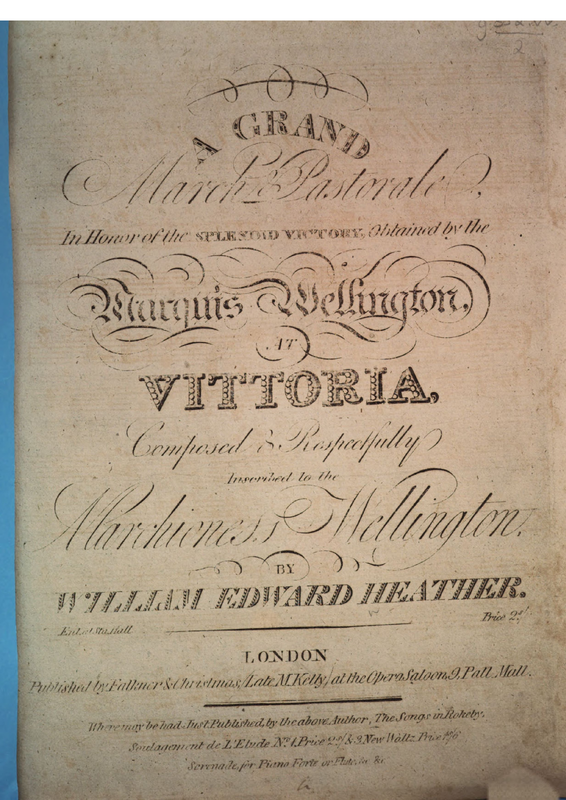 A GRAND
March & Pastorale,
In Honor of the SPLENDID VICTORY, Obtained by the
Marquis Wellington,
AT
VITTORIA,
Composed & Respectfully
Inscribed to the
Marchioness Wellington,
BY
WILLIAM EDWARD HEATHER.
Ent. at Sta. Hall
Price 2/
LONDON
Published by Falkner & Christmas, (Late M. Kelly) at the Opera Saloon, 9, Pall Mall.
Where may be had Just Published, by the above Author, The Songs in Rokeby,
Soulagement de L'Etude No. 1, Price 2/ & 3 New Waltz Price
Serenade, for Piano Forte or Flute, &c. &c.